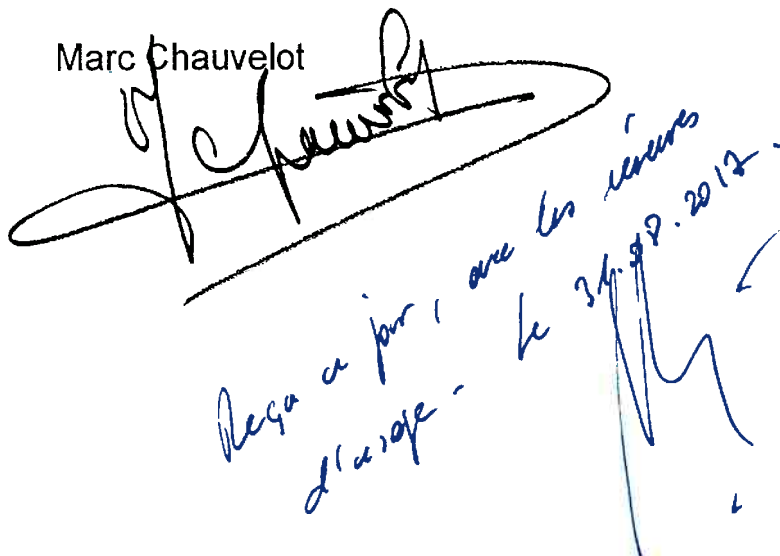 Marc Chauvelot
Reçu ce jour, avec les réserves
d'usage - Le 31.08.2017.